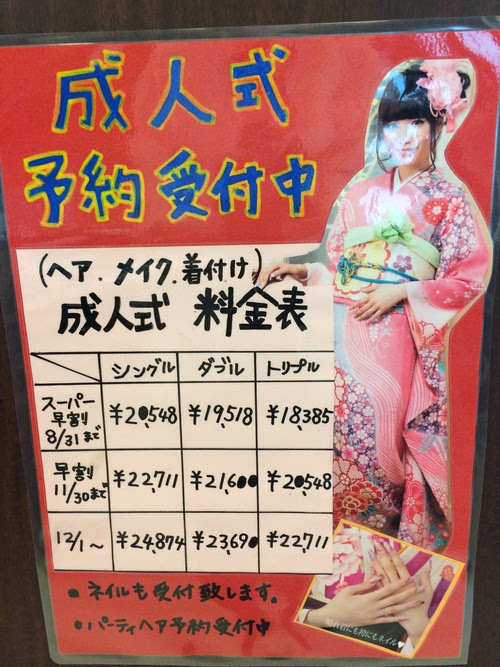 成人式
予約受付中
(ヘア.メイク.着付け)
成人式 料金表
シングル ダブル トリプル
スーパー
早割
8/31まで ¥20,548 ¥19,518 ¥18,385
早割
11/30まで ¥22,711 ¥21,600 ¥20,548
12/1~ ¥24,874 ¥23,690 ¥22,711
• ネイルも受付致します。
• パーティヘア予約受付中